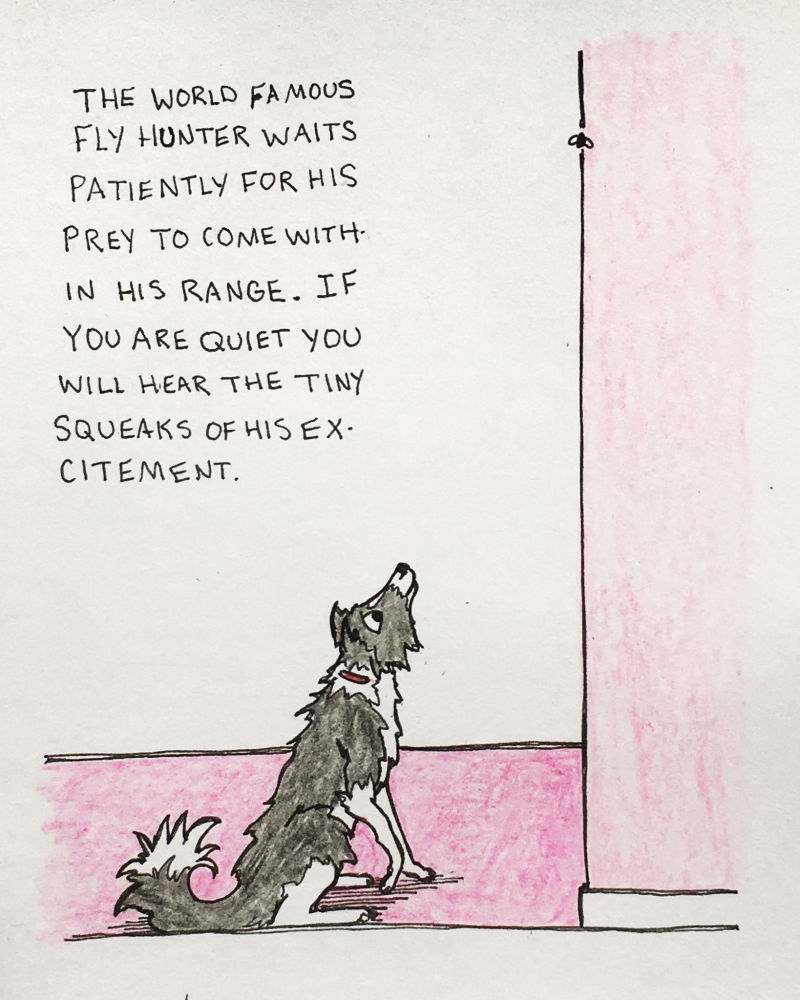 THE WORLD FAMOUS
FLY HUNTER WAITS
PATIENTLY FOR HIS
PREY TO COME WITH-
IN HIS RANGE. IF
YOU ARE QUIET YOU
WILL HEAR THE TINY
SQUEAKS OF HIS EX-
CITEMENT.